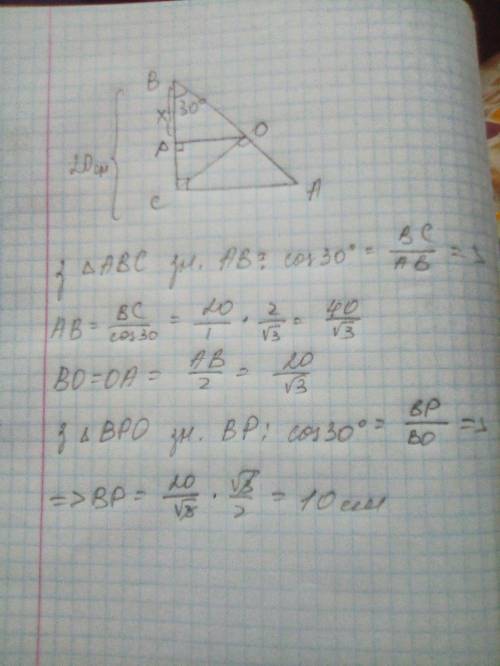 B
30°
X
O
P
20 см
C
A
З △ABC зн. AB: cos30° = BC/AB =>
AB = BC/cos30 = 20/1 · 2/√3 = 40/√3
BO=OA = AB/2 = 20/√3
З △BPO зн. BP: cos30° = BP/BO =>
=> BP = 20/√3 · √3/2 = 10 см